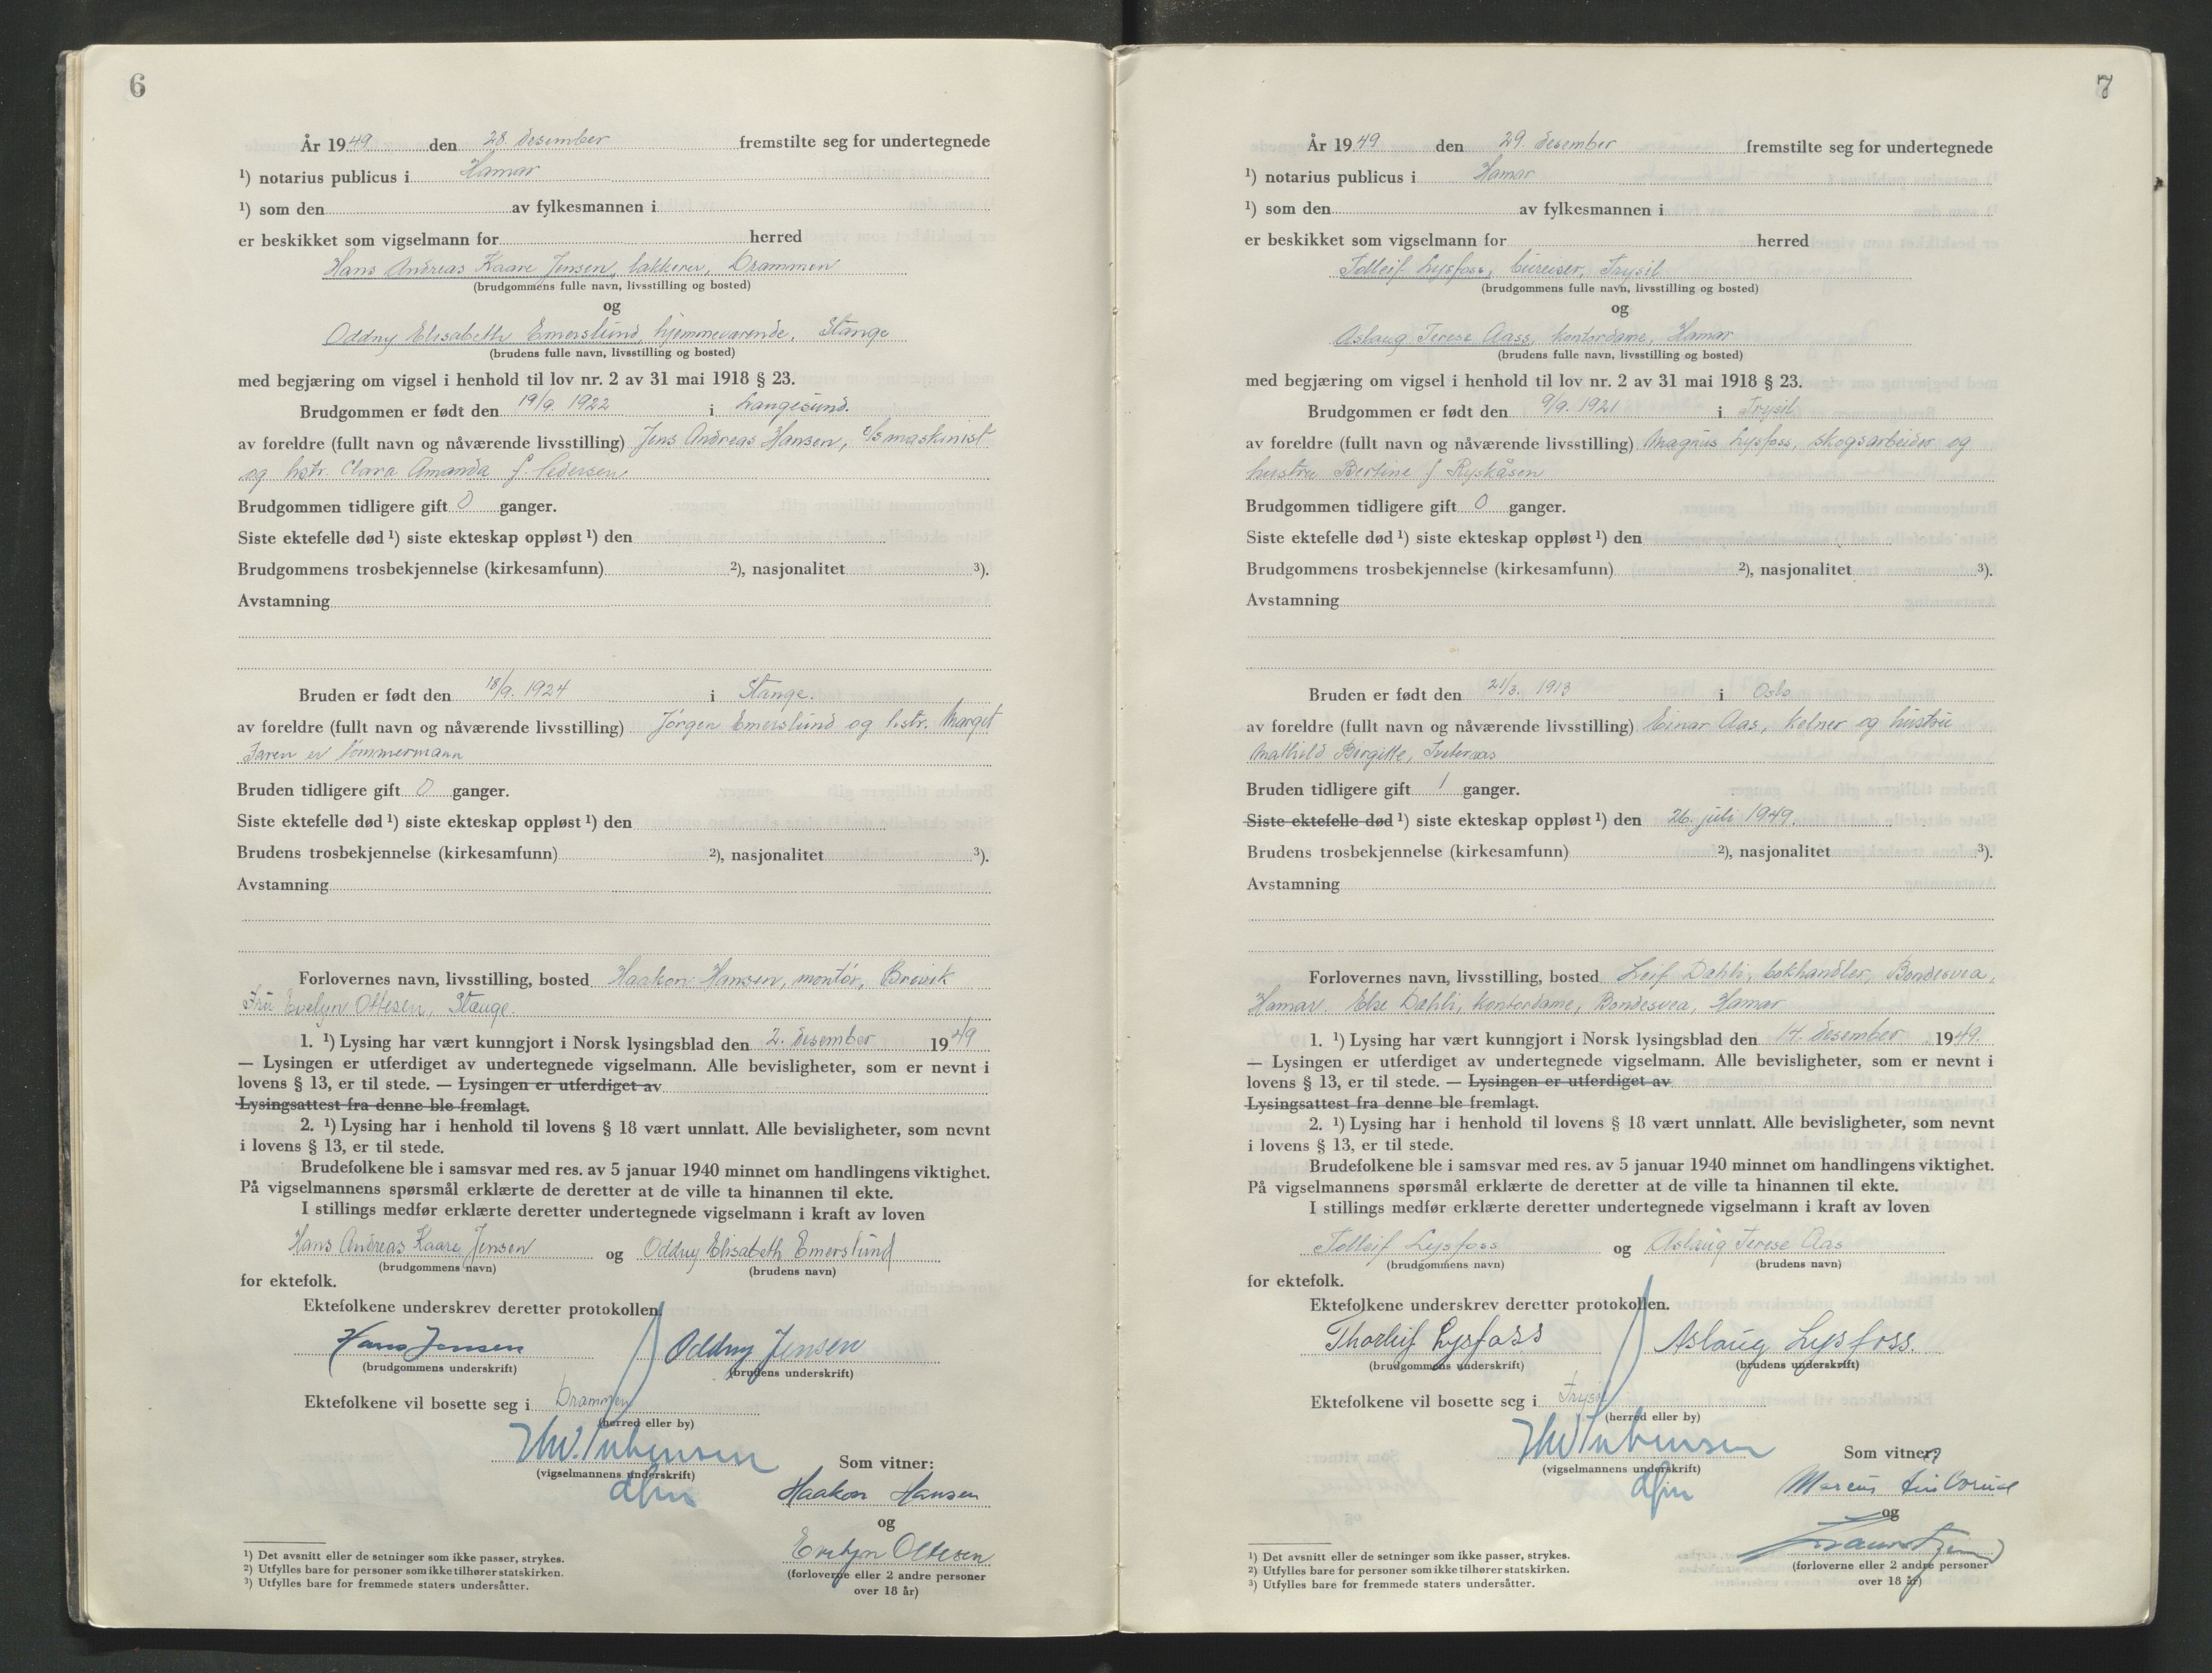 6
År 1949 den 28. desember fremstilte seg for undertegnede
¹) notarius publicus i Hamar
¹) som den av fylkesmannen i
er beskikket som vigselmann for herred
Hans Andreas Kaare Jensen, lakkerer, Drammen
(brudgommens fulle navn, livsstilling og bosted)
og
Oddny Elisabeth Emerslund, hjemmeværende, Stange
(brudens fulle navn, livsstilling og bosted)
med begjæring om vigsel i henhold til lov nr. 2 av 31 mai 1918 § 23.
Brudgommen er født den 19/9. 1922 i Langesund.
av foreldre (fullt navn og nåværende livsstilling) Jens Andreas Hansen, maskinist
og hstr. Clara Amanda f. Pedersen
Brudgommen tidligere gift 0 ganger.
Siste ektefelle død ¹) siste ekteskap oppløst ¹) den
Brudgommens trosbekjennelse (kirkesamfunn) ²), nasjonalitet ³).
Avstamning
Bruden er født den 18/9. 1924 i Stange.
av foreldre (fullt navn og nåværende livsstilling) Jørgen Emerslund og hstr. Margit
Faren er tømmermann
Bruden tidligere gift 0 ganger.
Siste ektefelle død ¹) siste ekteskap oppløst ¹) den
Brudens trosbekjennelse (kirkesamfunn) ²), nasjonalitet ³).
Avstamning
Forlovernes navn, livsstilling, bosted Haakon Hansen, montør, Brevik
Fru Evelyn Ottesen, Stange.
1. ¹) Lysing har vært kunngjort i Norsk lysingsblad den 2. desember 1949
— Lysingen er utferdiget av undertegnede vigselmann. Alle bevisligheter, som er nevnt i
lovens § 13, er til stede. — Lysingen er utferdiget av
Lysingsattest fra denne ble fremlagt.
2. ¹) Lysing har i henhold til lovens § 18 vært unnlatt. Alle bevisligheter, som nevnt
i lovens § 13, er til stede.
Brudefolkene ble i samsvar med res. av 5 januar 1940 minnet om handlingens viktighet.
På vigselmannens spørsmål erklærte de deretter at de ville ta hinannen til ekte.
I stillings medfør erklærte deretter undertegnede vigselmann i kraft av loven
Hans Andreas Kaare Jensen og Oddny Elisabeth Emerslund
(brudgommens navn) (brudens navn)
for ektefolk.
Ektefolkene underskrev deretter protokollen.
Hans Jensen Oddny Jensen
(brudgommens underskrift) (brudens underskrift)
Ektefolkene vil bosette seg i Drammen
(herred eller by)
(vigselmannens underskrift)
Som vitner:
Haakon Hansen
og
Evelyn Ottesen
(forloverne eller 2 andre personer
over 18 år)
¹) Det avsnitt eller de setninger som ikke passer, strykes.
²) Utfylles bare for personer som ikke tilhører statskirken.
³) Utfylles bare for fremmede staters undersåtter.
7
År 1949 den 29. desember fremstilte seg for undertegnede
¹) notarius publicus i Hamar
¹) som den av fylkesmannen i
er beskikket som vigselmann for herred
Tolleif Lysfoss, bureiser, Trysil
(brudgommens fulle navn, livsstilling og bosted)
og
Aslaug Terese Aass, kontordame, Hamar
(brudens fulle navn, livsstilling og bosted)
med begjæring om vigsel i henhold til lov nr. 2 av 31 mai 1918 § 23.
Brudgommen er født den 9/9. 1921 i Trysil
av foreldre (fullt navn og nåværende livsstilling) Magnus Lysfoss, skogsarbeider og
hustru Bertine f Ryskåsen
Brudgommen tidligere gift 0 ganger.
Siste ektefelle død ¹) siste ekteskap oppløst ¹) den
Brudgommens trosbekjennelse (kirkesamfunn) ²), nasjonalitet ³).
Avstamning
Bruden er født den 21/3. 1913 i Oslo
av foreldre (fullt navn og nåværende livsstilling) Einar Aas, kelner og hustru
Mathild Birgitte,
Bruden tidligere gift 1 ganger.
Siste ektefelle død ¹) siste ekteskap oppløst ¹) den 26. juli 1949.
Brudens trosbekjennelse (kirkesamfunn) ²), nasjonalitet ³).
Avstamning
Forlovernes navn, livsstilling, bosted Leif Dæhli, bokhandler, Bondesvea,
Hamar. Else Dæhli, kontordame, Bondesvea, Hamar
1. ¹) Lysing har vært kunngjort i Norsk lysingsblad den 14. desember 1949.
— Lysingen er utferdiget av undertegnede vigselmann. Alle bevisligheter, som er nevnt i
lovens § 13, er til stede. — Lysingen er utferdiget av
Lysingsattest fra denne ble fremlagt.
2. ¹) Lysing har i henhold til lovens § 18 vært unnlatt. Alle bevisligheter, som nevnt
i lovens § 13, er til stede.
Brudefolkene ble i samsvar med res. av 5 januar 1940 minnet om handlingens viktighet.
På vigselmannens spørsmål erklærte de deretter at de ville ta hinannen til ekte.
I stillings medfør erklærte deretter undertegnede vigselmann i kraft av loven
Tolleif Lysfoss og Aslaug Terese Aas
(brudgommens navn) (brudens navn)
for ektefolk.
Ektefolkene underskrev deretter protokollen.
Thorleif Lysfoss Aslaug Lysfoss.
(brudgommens underskrift) (brudens underskrift)
Ektefolkene vil bosette seg i Trysil
(herred eller by)
(vigselmannens underskrift)
Som vitner:
Marcus
og
(forloverne eller 2 andre personer
over 18 år)
¹) Det avsnitt eller de setninger som ikke passer, strykes.
²) Utfylles bare for personer som ikke tilhører statskirken.
³) Utfylles bare for fremmede staters undersåtter.